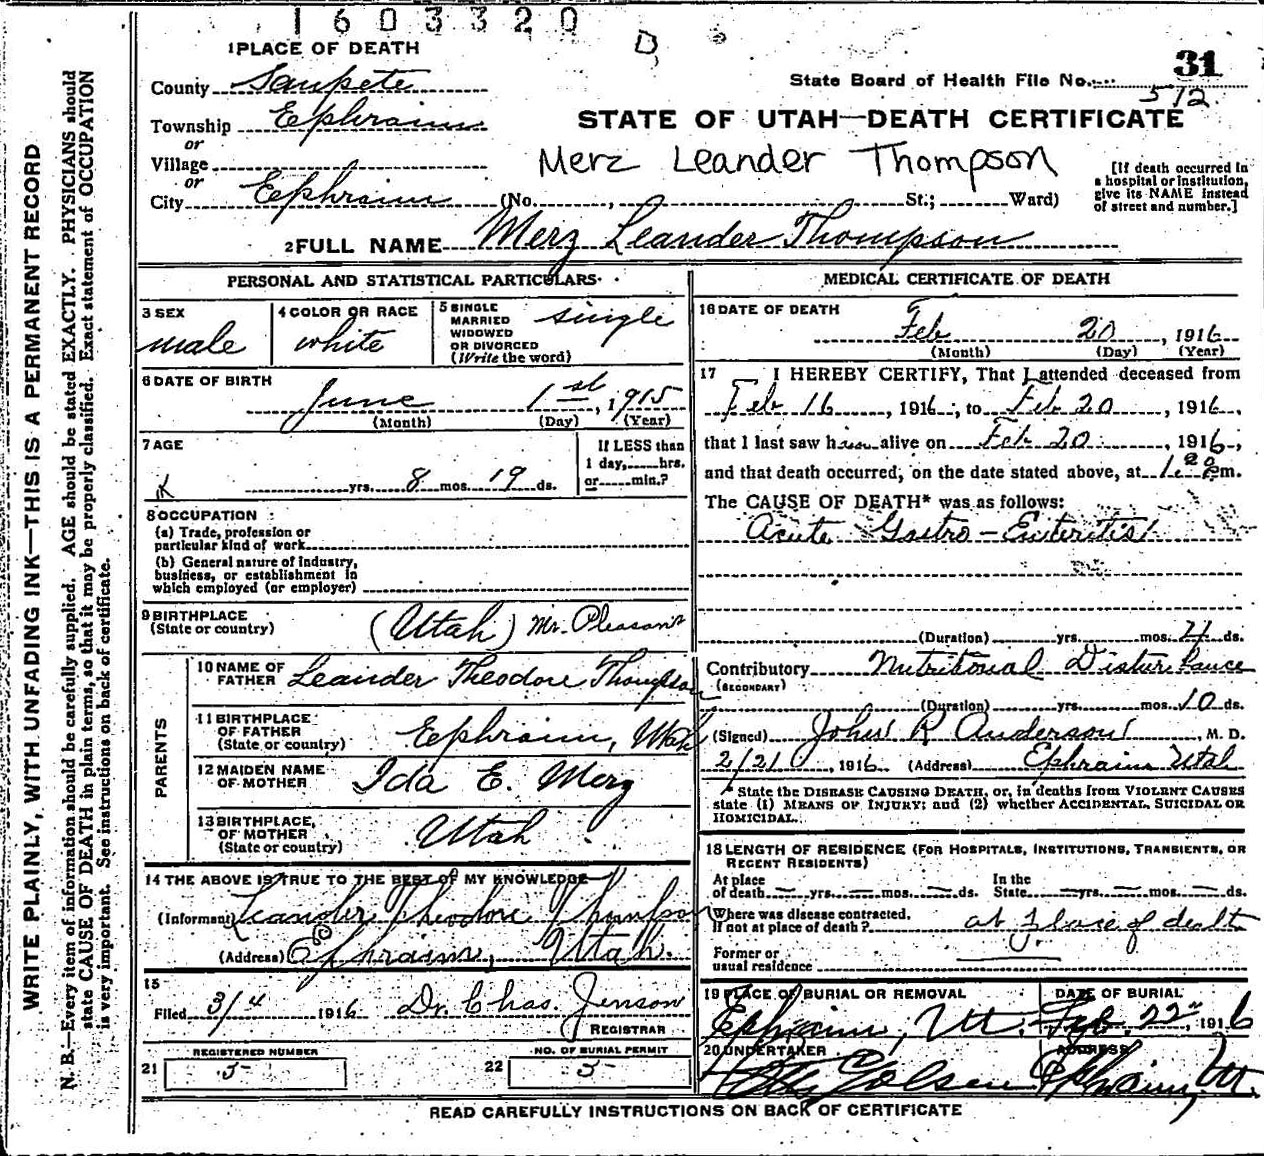 1603320
D
31
State Board of Health File No. 512
STATE OF UTAH—DEATH CERTIFICATE
Merz Leander Thompson
1 PLACE OF DEATH
County Sanpete
Township Ephraim
or
Village
or
City Ephraim (No. , St.; Ward)
[If death occurred in
a hospital or institution,
give its NAME instead
of street and number.]
2 FULL NAME Merz Leander Thompson
PERSONAL AND STATISTICAL PARTICULARS
3 SEX
male
4 COLOR OR RACE
white
5 SINGLE
MARRIED
WIDOWED
OR DIVORCED
(Write the word)
single
6 DATE OF BIRTH
June 1st, 1915
(Month) (Day) (Year)
7 AGE
yrs. 8 mos. 19 ds.
If LESS than
1 day, hrs.
or min.?
8 OCCUPATION
(a) Trade, profession or
particular kind of work
(b) General nature of Industry,
business, or establishment in
which employed (or employer)
9 BIRTHPLACE
(State or country)
(Utah) Mt. Pleasant
PARENTS
10 NAME OF
FATHER
Leander Theodore Thompson
11 BIRTHPLACE
OF FATHER
(State or country)
Ephraim, Utah
12 MAIDEN NAME
OF MOTHER
Ida E. Merz
13 BIRTHPLACE,
OF MOTHER
(State or country)
Utah
14 THE ABOVE IS TRUE TO THE BEST OF MY KNOWLEDGE
(Informant) Leander Theodore Thompson
(Address) Ephraim, Utah.
15
Filed 3/4 1916 Dr. Chas. Jenson
REGISTRAR
REGISTERED NUMBER
21 5
NO. OF BURIAL PERMIT
22 5
MEDICAL CERTIFICATE OF DEATH
16 DATE OF DEATH
Feb 20, 1916
(Month) (Day) (Year)
17 I HEREBY CERTIFY, That I attended deceased from
Feb 16, 1916, to Feb 20, 1916,
that I last saw him alive on Feb 20, 1916,
and that death occurred, on the date stated above, at m.
The CAUSE OF DEATH* was as follows:
Acute Gastro-Enteritis
(Duration) yrs. mos. ds.
Contributory Nutritional Disturbance
(SECONDARY)
(Duration) yrs. mos. 10 ds.
(Signed) John R Anderson, M. D.
2/21, 1916 (Address) Ephraim Utah
* State the DISEASE CAUSING DEATH, or, in deaths from VIOLENT CAUSES
state (1) MEANS OF INJURY; and (2) whether ACCIDENTAL, SUICIDAL OR
HOMICIDAL.
18 LENGTH OF RESIDENCE (FOR HOSPITALS, INSTITUTIONS, TRANSIENTS, OR
RECENT RESIDENTS)
At place
of death — yrs. — mos. — ds.
In the
State — yrs. — mos. — ds.
Where was disease contracted,
If not at place of death? at place of death
Former or
usual residence
19 PLACE OF BURIAL OR REMOVAL
Ephraim, Ut.
DATE OF BURIAL
Feb. 22, 1916
20 UNDERTAKER
Olsen
ADDRESS
Ephraim, Ut.
READ CAREFULLY INSTRUCTIONS ON BACK OF CERTIFICATE
WRITE PLAINLY, WITH UNFADING INK—THIS IS A PERMANENT RECORD
N. B.—Every item of information should be carefully supplied. AGE should be stated EXACTLY. PHYSICIANS should
state CAUSE OF DEATH in plain terms, so that it may be properly classified. Exact statement of OCCUPATION
is very important. See instructions on back of certificate.